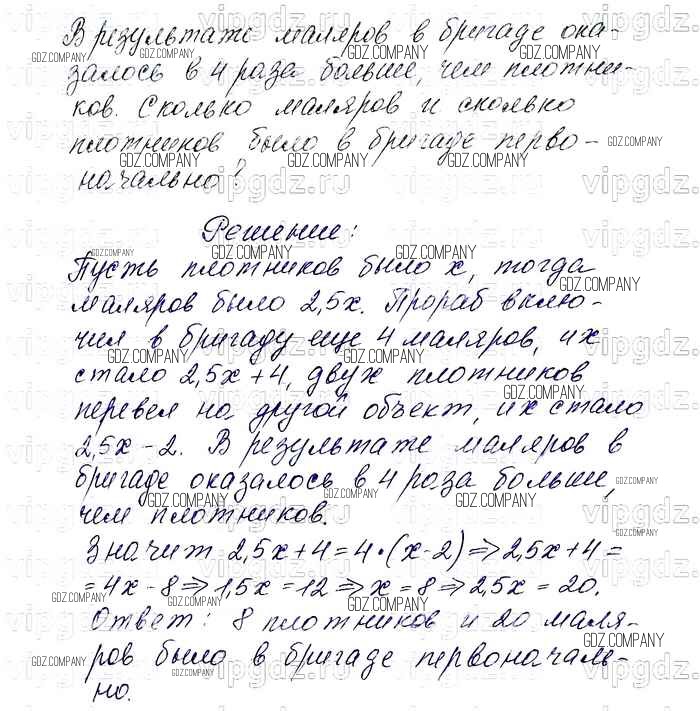 В результате маляров в бригаде ока-
залось в 4 раза больше, чем плотни-
ков. Сколько маляров и сколько
плотников было в бригаде перво-
начально?
Решение:
Пусть плотников было x, тогда
маляров было 2,5x. Прораб вклю-
чил в бригаду еще 4 маляров, их
стало 2,5x+4, двух плотников
перевел на другой объект, их стало
2,5x-2. В результате маляров в
бригаде оказалось в 4 раза больше,
чем плотников.
Значит 2,5x+4=4·(x-2)⇒2,5x+4=
=4x-8⇒1,5x=12⇒x=8⇒2,5x=20.
Ответ: 8 плотников и 20 маля-
ров было в бригаде первоначаль-
но.